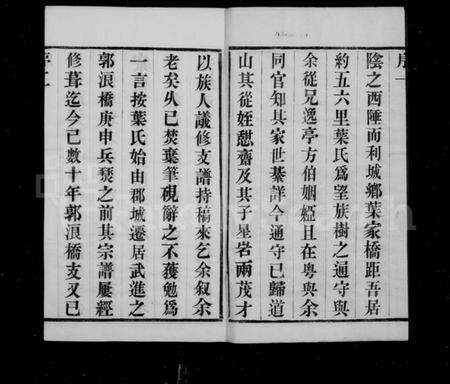 序一
陰之西陲而利城鄉葉家橋距吾居
約五六里葉氏爲望族樹之通守與
余從兄逸亭方伯姻婭且在粤與余
同官知其家世綦詳今通守已歸道
山其從姪懇齋及其子星岩兩茂才
以族人議修支譜持稿來乞余叙余
老矣久已焚棄筆硯辭之不獲勉爲
一言按葉氏始由郡城遷居武進之
郭浪橋庚申兵燹之前其宗譜屢經
修葺迄今已數十年郭浪橋支又已
序二